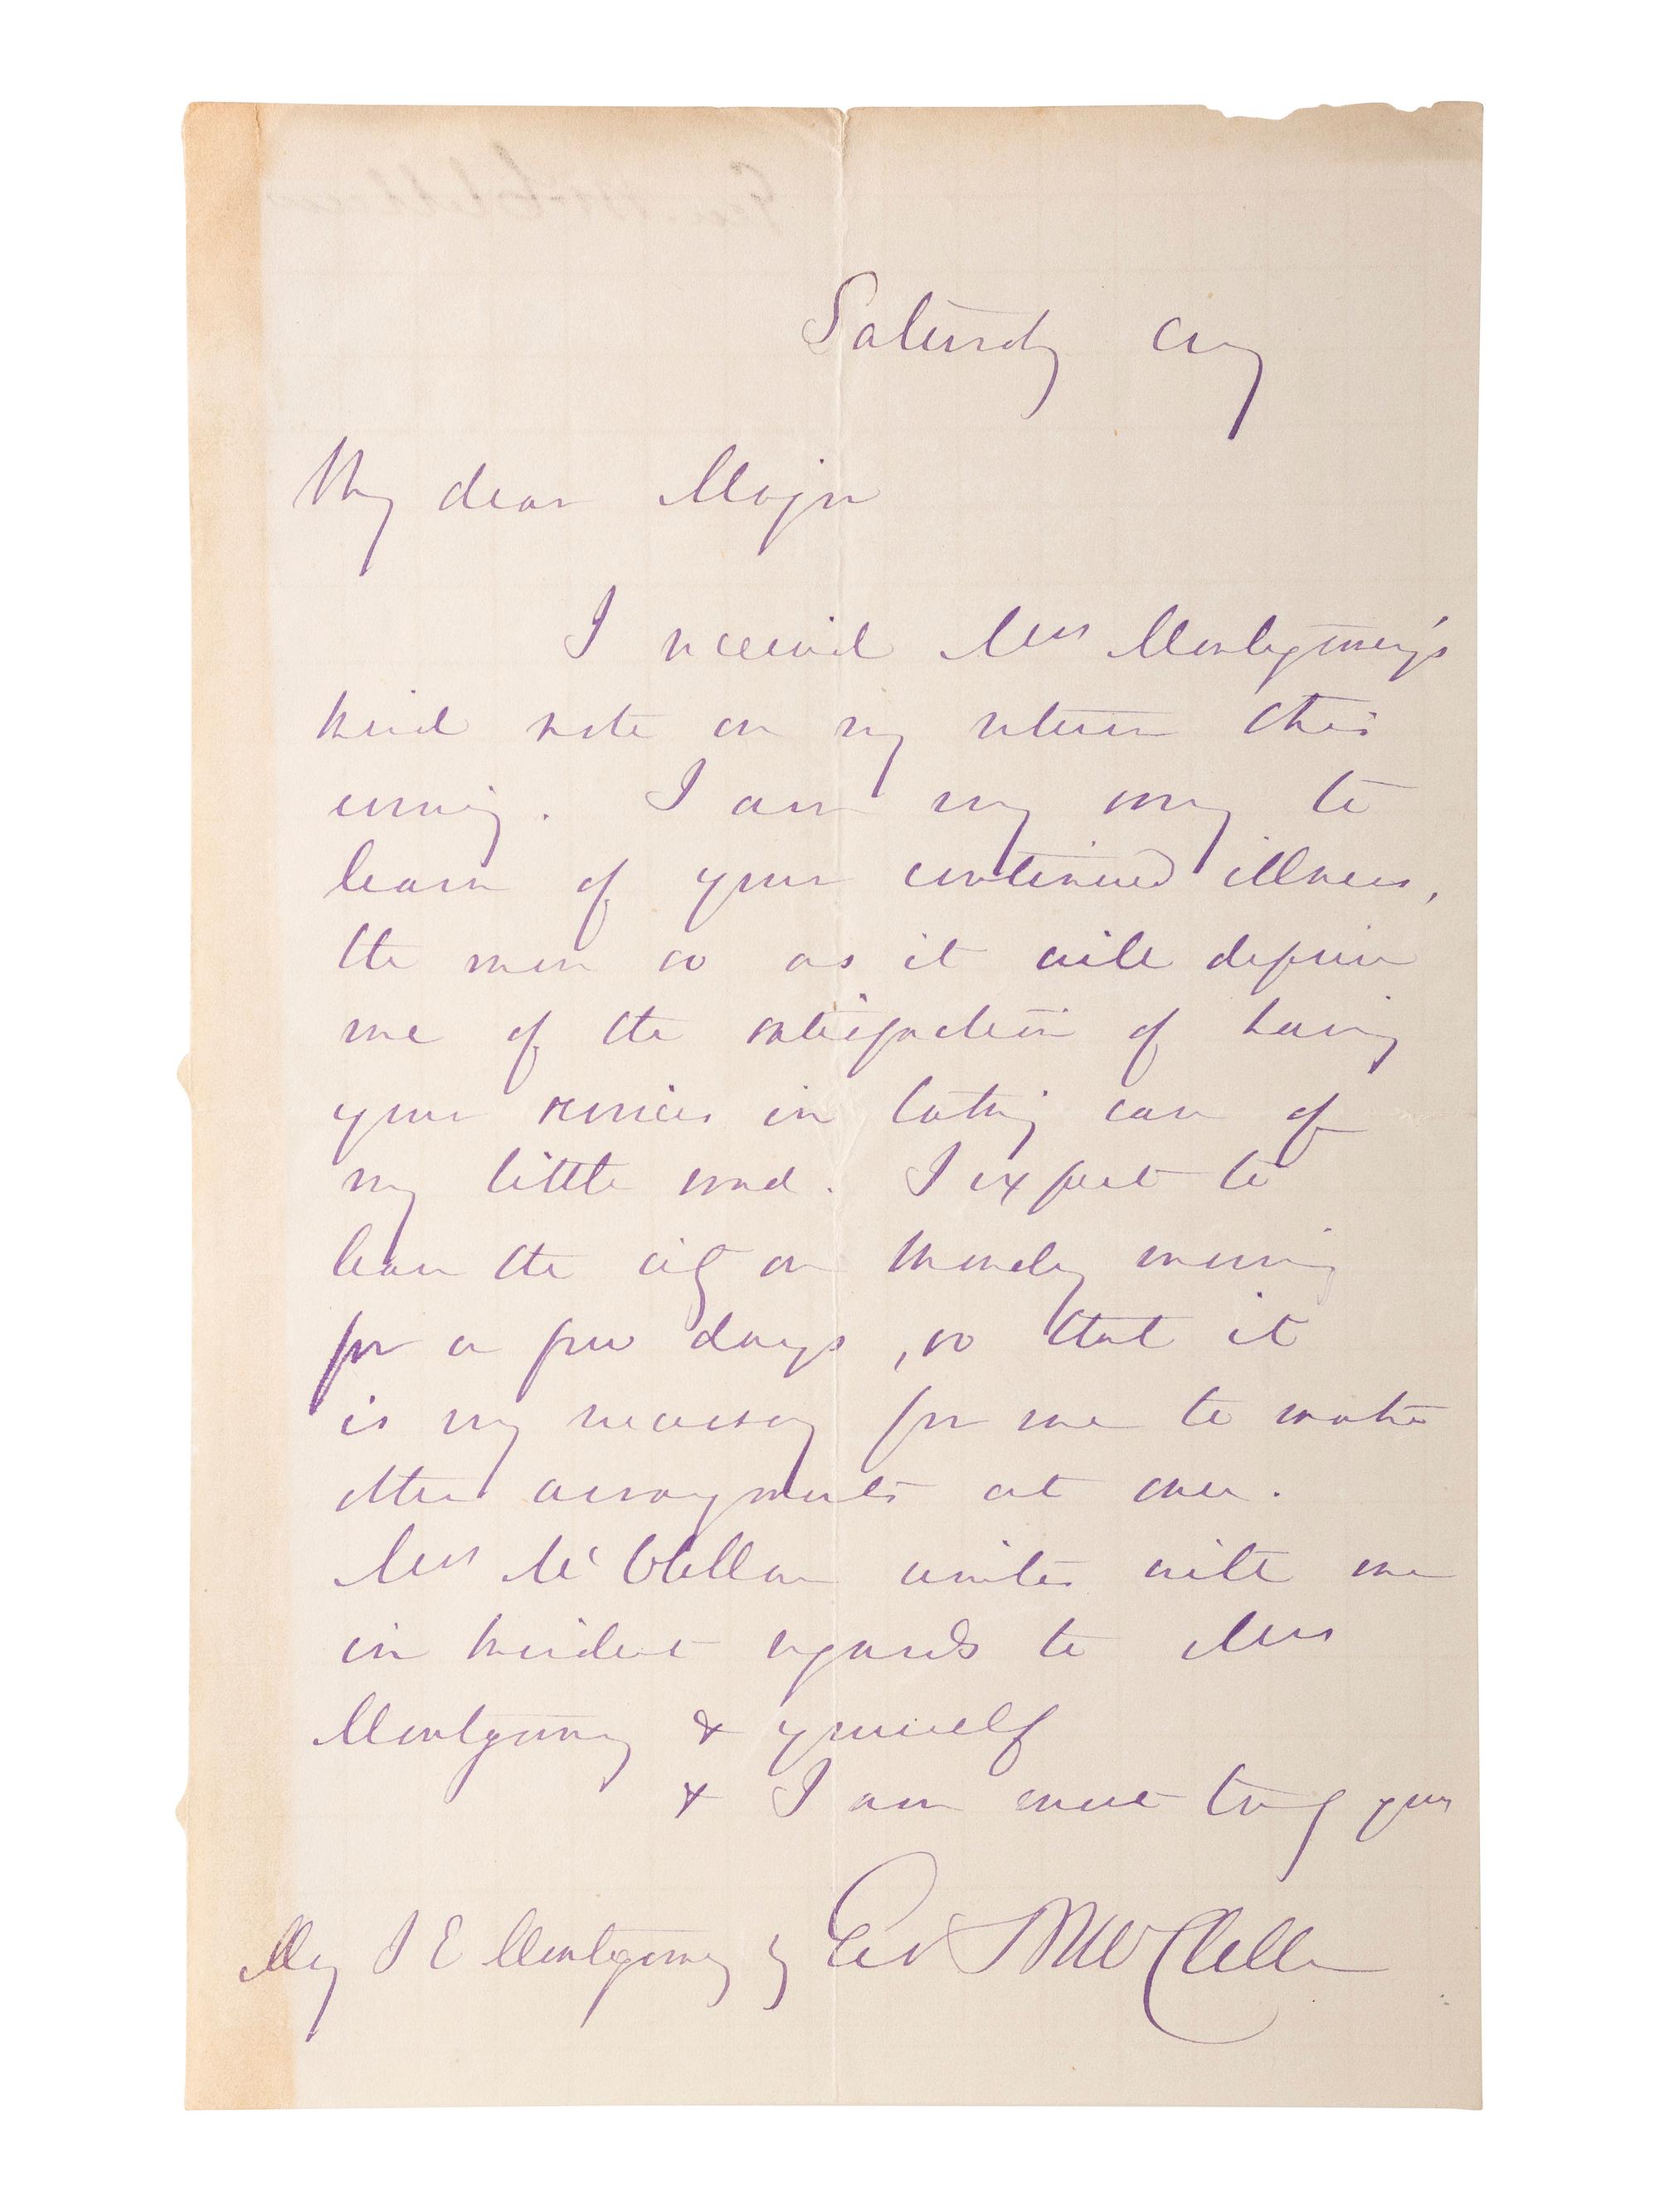 Saturday evg
My dear Major
I received Mrs Montgomery's
kind note on my return this
evening. I am very sorry to
learn of your continued illness,
the more so as it will deprive
me of the satisfaction of having
your services in taking care of
my little ward. I expect to
leave the city on Monday morning
for a few days, so that it
is very necessary for me to make
other arrangements at once.
Mrs McClellan unites with me
in kindest regards to Mrs
Montgomery & yourself
& I am most truly yours
Geo B McClellan
Maj J E Montgomery